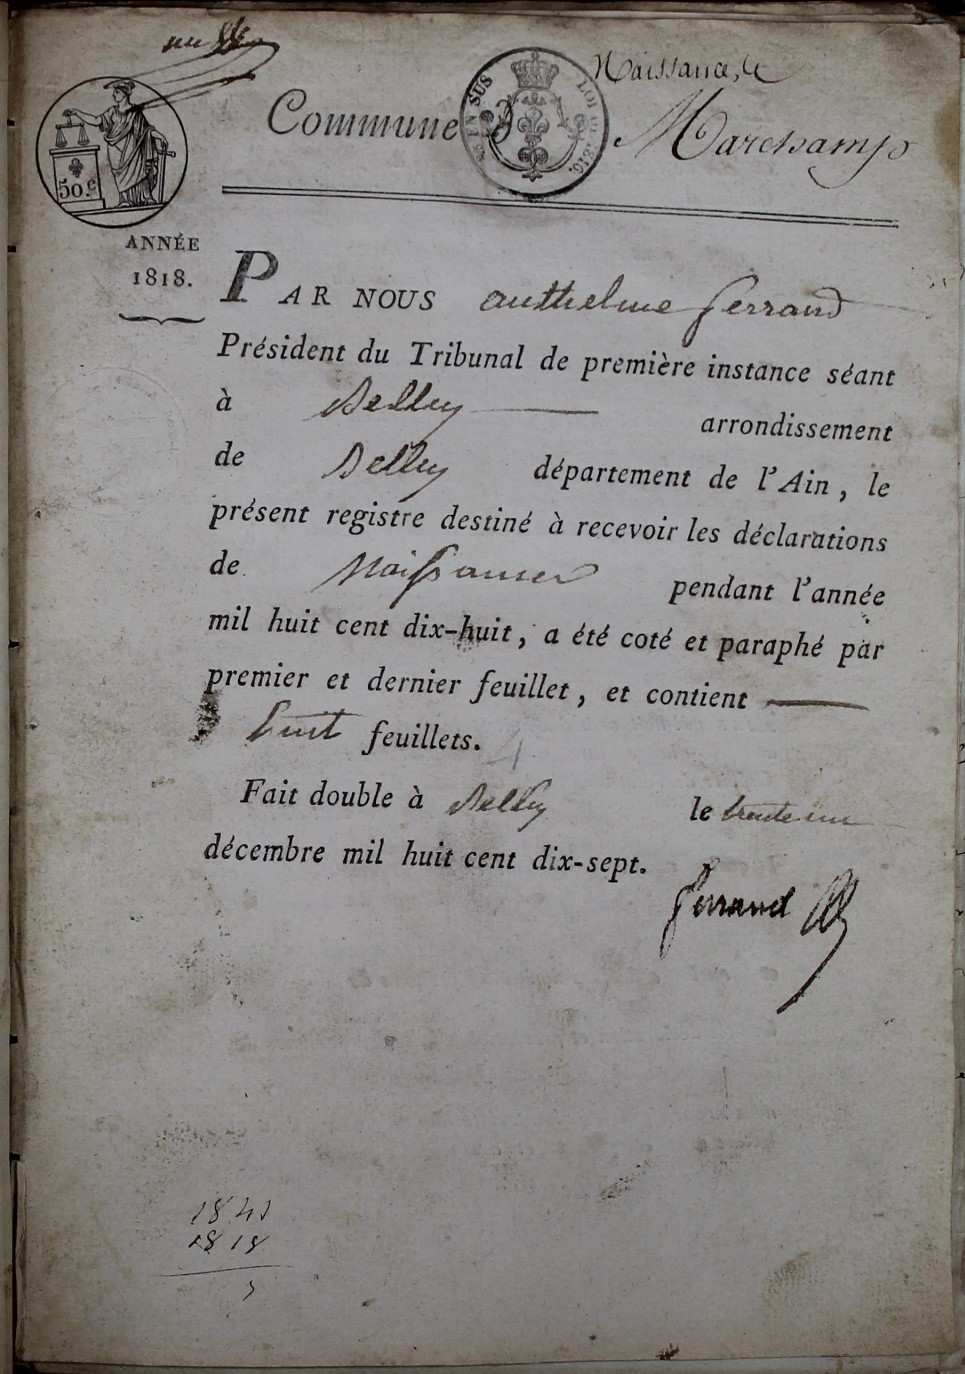 Naissance
Commune d Marchamp
EN SUS LOI 1816.
50.c
ANNÉE
1818.
PAR NOUS anthelme ferrand
Président du Tribunal de première instance séant
à Belley arrondissement
de Belley département de l'Ain, le
présent registre destiné à recevoir les déclarations
de Naissances pendant l'année
mil huit cent dix-huit, a été coté et paraphé par
premier et dernier feuillet, et contient
huit feuillets.
4
Fait double à Belley le trente un
décembre mil huit cent dix-sept.
ferrand
1841
1818